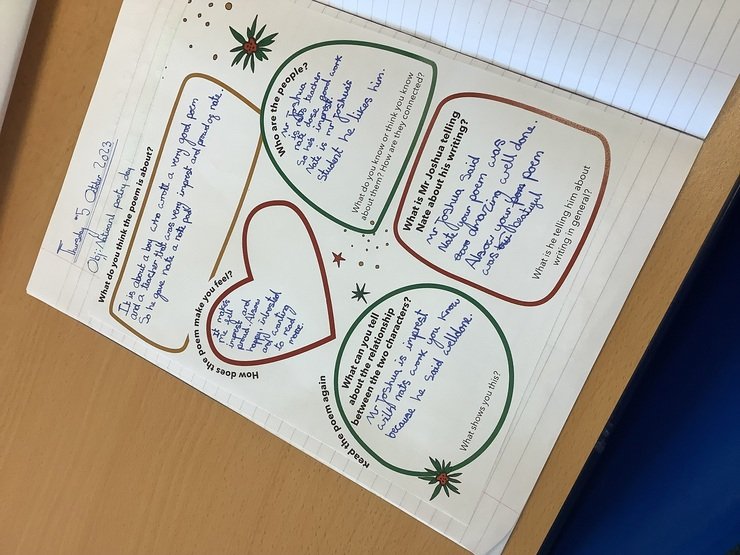 Thursday 5 October 2023
Obj: National poetry day
What do you think the poem is about?
It is about a boy who wrote a very good poem
and a teacher that was very imprest and proud of nate.
So he gave nate a note pad
Who are the people?
Mr Joshua
is nats teacher
nate dose good work
So he's imprest
Nate is mr Joshua's
Student he likes him.
What do you know or think you know
about them? How are they connected?
How does the poem make you feel?
it makes
me fell
imprest and
proud. Alsow
happy, intrested
and wanting
to read
more.
What is Mr Joshua telling
Nate about his writing?
Mr Joshua Said
Nate your poem was
Soo amazing well done.
Alsow your poem
was beatyful
What is he telling him about
writing in general?
Read the poem again
What can you tell
about the relationship
between the two characters?
Mr Joshua is imprest
with nats work you know
because he said welldone.
What shows you this?